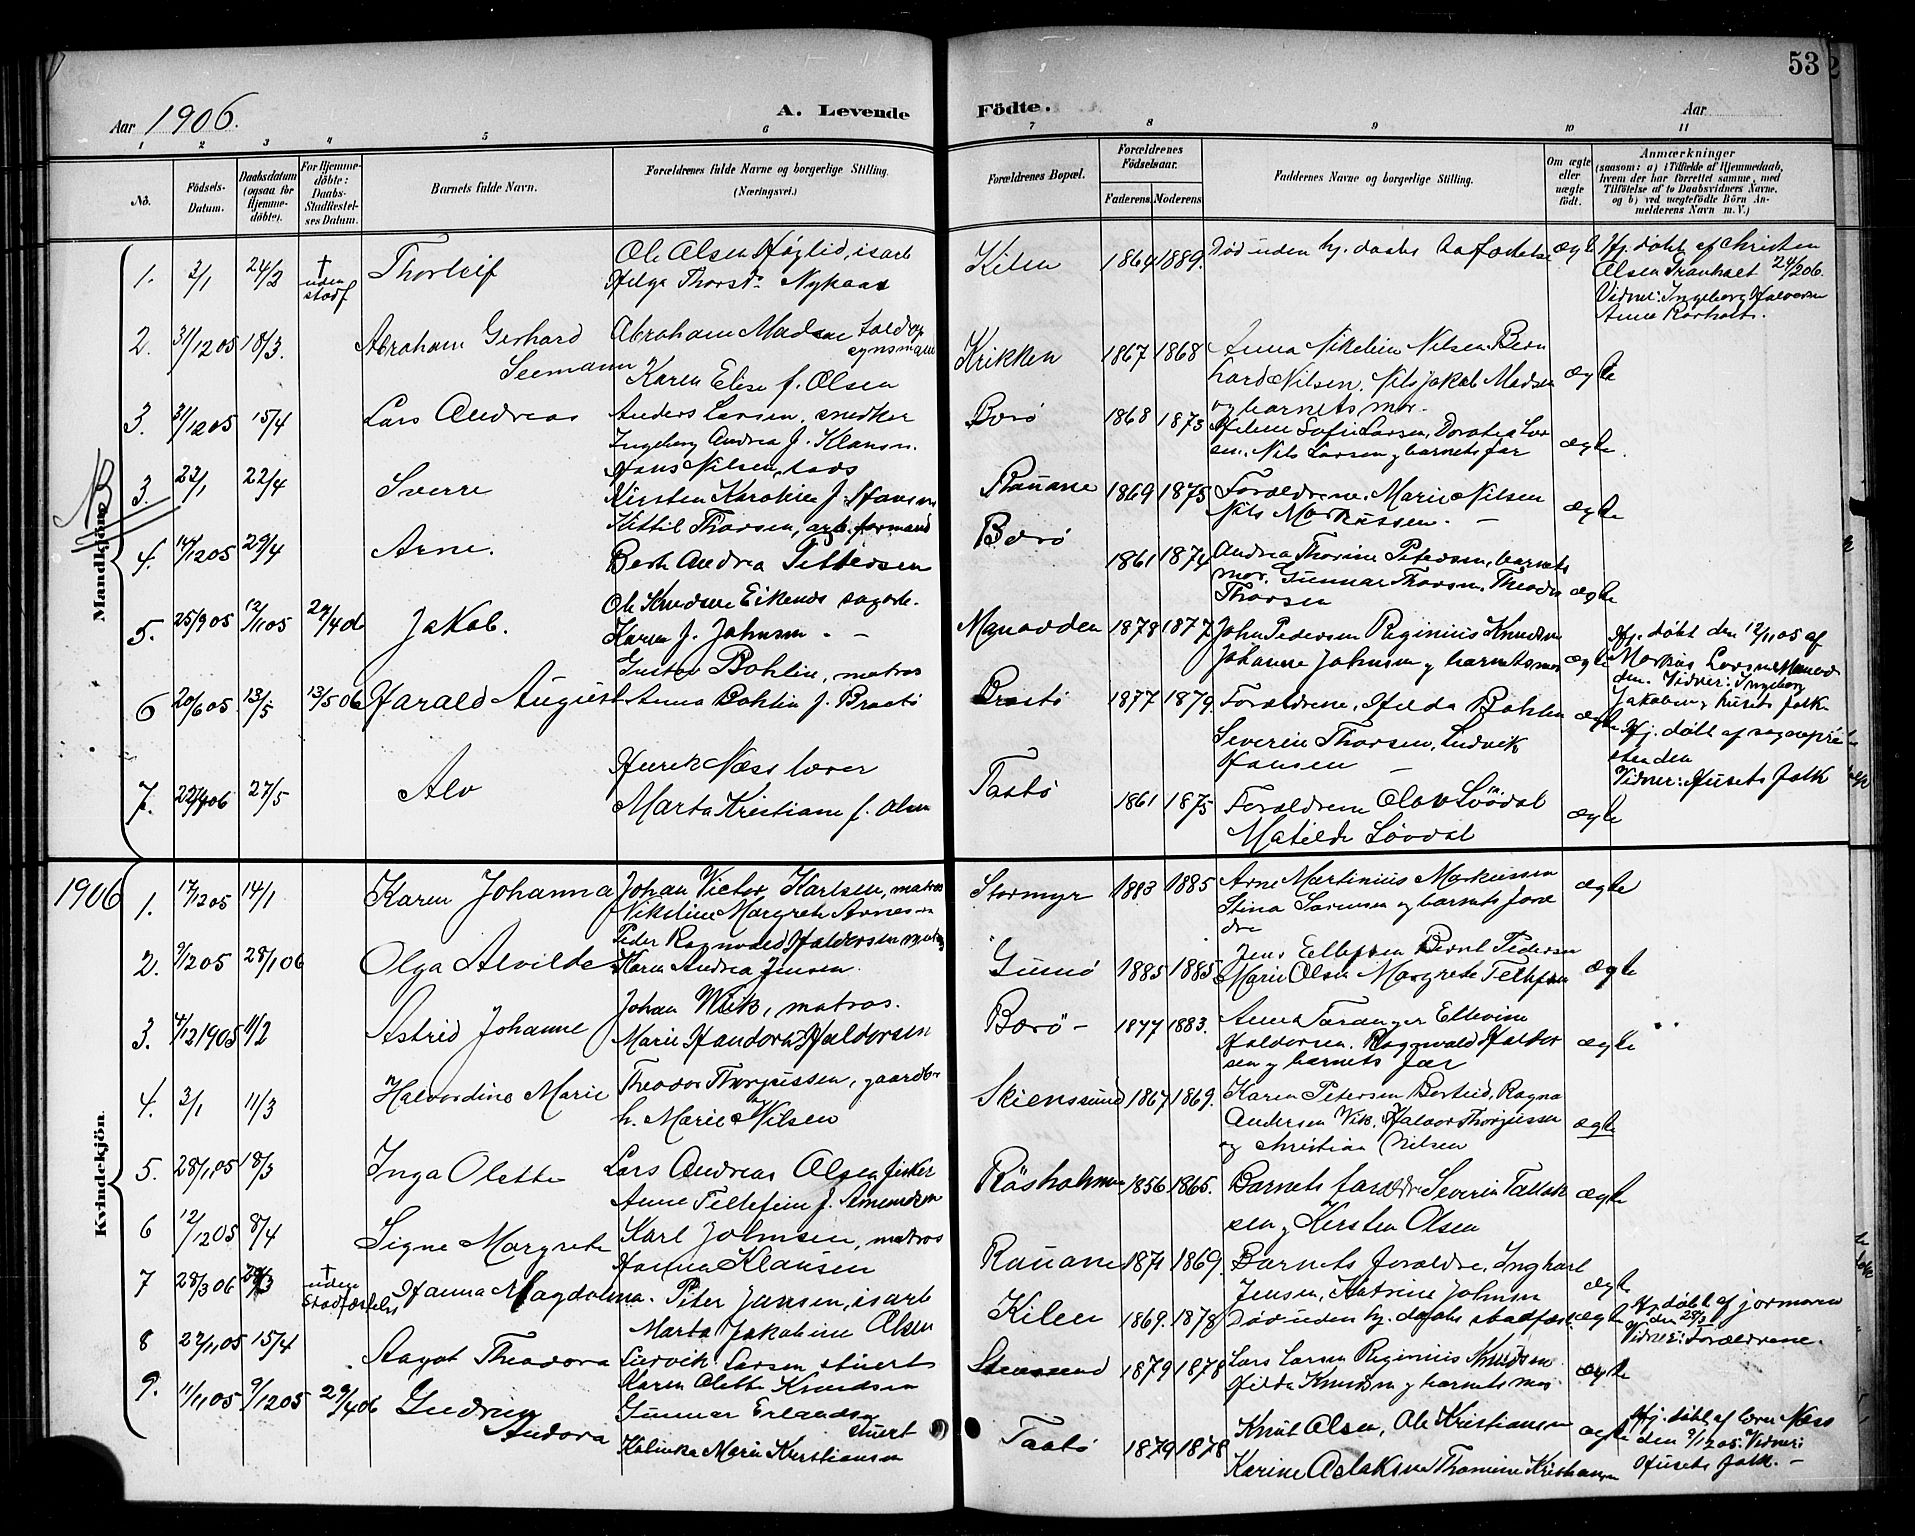 53
Aar 1906.
A. Levende Födte.
Aar
1 2 3 4 5 6 7 8 9 10 11
No.
Födsels-Datum.
Daabsdatum (ogsaa for Hjemme-döbte).
For Hjemme-döbte: Daabs-Stadfæstel-ses Datum.
Barnets fulde Navn.
Forældrenes fulde Navne og borgerlige Stilling. (Næringsvei.)
Forældrenes Bopæl.
Forældrenes Födselsaar.
Faderens Moderens
Faddernes Navne og borgerlige Stilling.
Om ægte eller uægte födt.
Anmærkninger
(saasom: a) i Tilfælde af Hjemmedaab,
hvem der har forrettet samme, med
Tilföielse af to Daabsvidners Navne,
og b) ved uægtefödte Börn An-
melderens Navn m. V.)
Mandkjön.
1. 2/1 24/2 † uden stadf Thorleif
Ole Olsen Høglid, isarb
Helga Thorsd. Nykaas
Kilen 1864 1889. Død uden hj. daabs ægte
Hj. døbt af Christen
Olsen 24/2 06.
Vidner: Ingeborg Halvorsen
Anne
2. 31/12 05 18/3. Abraham Gerhard
Seemann
Abraham Madsen
Karen Elise f. Olsen
Krikken 1867 1868 Anna Nikeline Nilsen, Bern
hard Nilsen, Nils Jakob Madsen
og barnets mor. ægte
3. 31/12 05 15/4 Lars Andreas
Anders Larsen, snedker
Ingeborg Andrea f. Klausen.
Borø 1868 1873 Helene Sofie Larsen, Dorotea Lar
sen. Nils Larsen og barnets far ægte.
NB
3. 22/1 22/4 Sverre
Hans Nilsen, lods
Kirsten Karoline f. Hansen
Rauane 1869 1875 Forældrene. Marie Nilsen
Nils Markussen. – ægte
4. 14/12 05 29/4 Arne.
Kittil Thorsen, arb. formand
Berte Andrea Pettersen
Borø 1861 1874 Andrea Thorine Petersen, barnets
mor. Gunnar Thorsen, Theodor
Thorsen ægte
5. 25/9 05 12/11 05 29/4 06 Jakob.
Ole Knudsen Eikenes
Karen f. Johnsen. –
1878 1877 John Pedersen Reginius Knudsen
Johanne Johnsen og barnets mor ægte
Hj. døbt den 12/11 05 af
Markus Larsen
den. Vidner: Ingeborg
Jakobsen og husets folk
6 20/6 05 13/5 13/5 06 Harald August
Gustav Bohlin, matros
Anna Bohlin f. Brastø
Brastø 1877 1879. Forældrene, Hilda Bohlin
Severin Thorsen, Ludvik
Hansen – ægte
Hj. døbt af sognepre
sten den
Vidner: Husets folk
7. 27/5 Alv
Henrik Næss lærer
Marta Kristiane f. Olsen
Taatø 1861 1875 Forældrene Olav Løvdal
Matilde Løvdal ægte
Kvindekjön.
1906
1. 17/12 05 14/1 Karen Johanna
Johan Victor Karlsen, matros
Nikoline Margrete Arnesen
Stormyr 1883 1885 Arne Martinius Markussen
Stina Sørensen og barnets foræl
dre ægte
2. 9/12 05 28/1 06 Olga Alvilde
Peder Ragnvald Haldorsen matros
Karen Andrea Jensen.
Gumø 1885 1885 Jens Ellefsen Bernt Pedersen
Marie Olsen Margrete Tellefsen ægte
3. 4/12 1905 11/2 Astrid Johanne
Johan Wiik, matros.
Marie Handora Haldorsen
Borø – 1877 1883. Anna Ellevine
Haldorsen. Ragnvald Haldor
sen og barnets far ægte
4. 3/1 11/3 Halvordine Marie
Theodor Thorjussen, gaardbr
h. Marie Nilsen
Skienssund 1867 1869. Karen Petersen Ragna
Andersen Wik, Halvor Thorjussen
og Christian Nilsen ægte
5. 28/11 05 18/3 Inga Olette
Lars Andreas Olsen fisker
Anne Tellefsen f. Amundsen
Råsholmen 1856 1865. Barnets forældre Severin Tallak
sen og Kirsten Olsen ægte
6 12/12 05 8/4 Signe Margrete
Karl Johnsen, matros
Hanna Klausen
Rauane 1871 1869. Barnets forældre, Inghart
Jensen, Katrine Johnsen ægte
7 28/3 06 28/3 † uden Stadfæstelse Hanna Magdalena.
Peter Jansen, isarb
Marta Jakobine Olsen
Kilen 1869. 1878 Død uden hj. daabs stadfæst. ægte
Hj. døbt af jormoren
den 28/3
Vidner: Forældrene.
8 22/11 05 15/4 Aagot Theodora
Ludvik Larsen stuert
Karen Olette Knudsen
Stenssund 1879 1878 Lars Larsen Reginius Knudsen
Hilda Knudsen og barnets mor ægte
9. 11/11 05 9/12 05 29/4 06 Gudrun
Andora
Gunnar Erlandsen
stuert
Kalinka Marie Kristiansen
Taatø 1879 1878 Knut Olsen, Ole Kristiansen
Karine Aslaksen Thomine Kristiansen ægte
Hj. døbt af lærer Næss
den 9/12 05. Vidner:
Husets folk. –